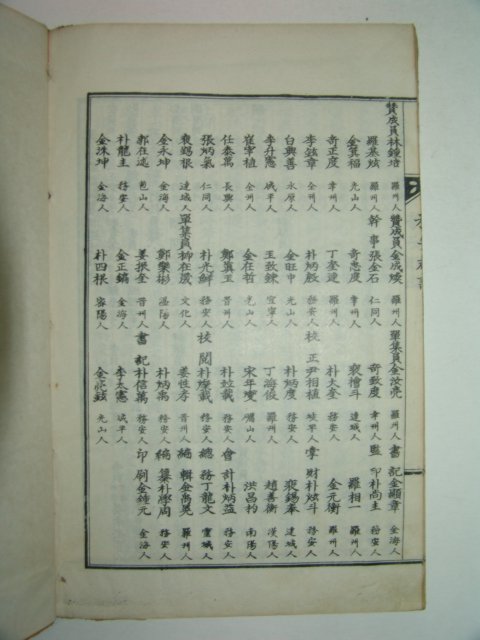 贊成員林鍾培 羅州人 贊成員金成煥 羅州人 單集員金汝亮 羅州人 書記金顯章 金海人
羅基炫 羅州人 幹事張金石 仁同人 奇致度 幸州人 監印朴尚圭 務安人
金箕福 光山人 奇惠度 幸州人 裵檜斗 達城人 羅相一 羅州人
奇正度 幸州人 丁奎連 羅州人 朴太奎 務安人 金元衡 羅州人
李鉉章 全州人 朴炳殷 務安人 校正尹相植 坡平人 掌財朴炫斗 務安人
白興善 水原人 金旺中 光山人 朴炳度 務安人 裵錫奉 達城人
李丹憲 咸平人 王致鍊 宜寧人 丁海俊 羅州人 趙善衡 漢陽人
崔宰植 全州人 金在哲 光山人 宋年燮 礪山人 洪昌杓 南陽人
任泰萬 長興人 鄭玉 晋州人 朴竝載 務安人 會計朴炳益 務安人
張炳氣 仁同人 朴光鮮 務安人 校閱朴燦載 務安人 總務丁龍文 靈城人
裵錫根 達城人 單集員柳在茂 文化人 姜性孝 晋州人 編輯金禹晃 羅州人
金永坤 金海人 鄭樂彬 溫陽人 朴炳萬 務安人 編纂朴周 務安人
郭在述 包山人 姜振奎 晋州人 書記朴信萬 務安人 印刷金鍾元 金海人
朴龍圭 務安人 金正鎬 金海人 李太憲 咸平人
金洙坤 金海人 朴四根 密陽人 金 光山人